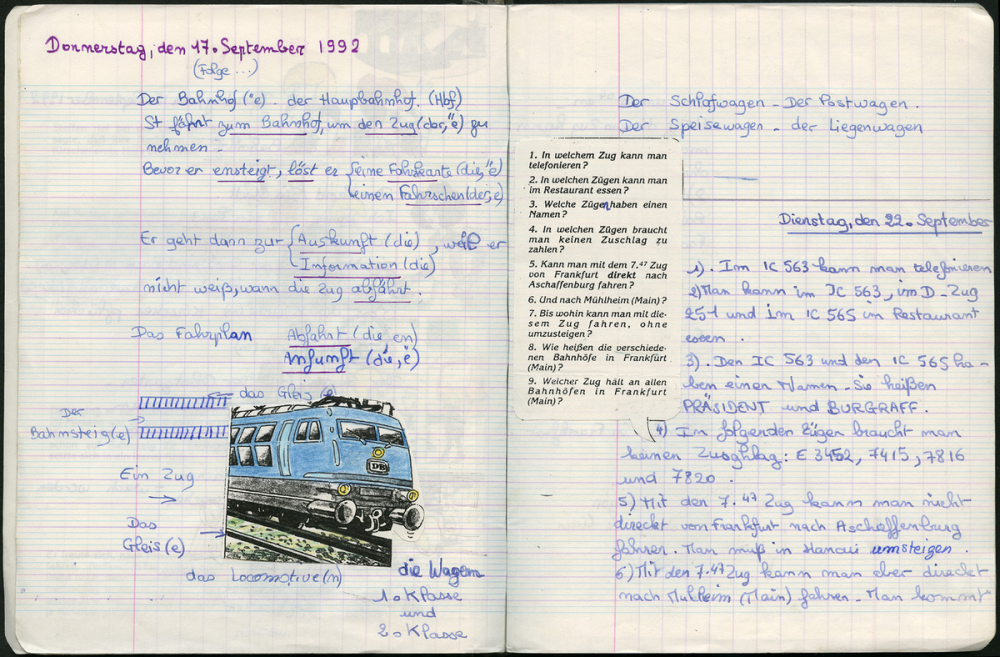 Donnerstag, den 17. September 1992
(Folge ...)
Der Bahnhof ("e) - der Hauptbahnhof. (Hbf)
St fährt zum Bahnhof, um den Zug (der, "e) zu
nehmen -
Bevor er ensteigt, löst er { eine Fahrkarte (die, "e)
einen Fahrschen (der, e)
Er geht dann zur { Auskunft (die) , weiß er
Information (die)
nicht weiß, wann die Zug abfährt.
Das Fahrplan Abfahrt (die en)
Anfunft (die, "e)
das Gleis (e)
Der
Bahnsteig (e)
Ein Zug
DB
Das
Gleis (e)
das Locomotive (n)
die Wagen
1. Klasse
und
2. Klasse
Der Schlafwagen - Der Postwagen.
Der Speisewagen - der Liegenwagen
1. In welchem Zug kann man
telefonieren?
2. In welchen Zügen kann man
im Restaurant essen?
3. Welche Zügen haben einen
Namen?
4. In welchen Zügen braucht
man keinen Zuschlag zu
zahlen?
5. Kann man mit dem 7.47 Zug
von Frankfurt direkt nach
Aschaffenburg fahren?
6. Und nach Mühlheim (Main)?
7. Bis wohin kann man mit die-
sem Zug fahren, ohne
umzusteigen?
8. Wie heißen die verschiede-
nen Bahnhöfe in Frankfurt
(Main)?
9. Welcher Zug hält an allen
Bahnhöfen in Frankfurt
(Main)?
Dienstag, den 22. September
1). Im IC 563 kann man telefonieren
2) Man kann im IC 563, im D-Zug
251 und im IC 565 in Restaurant
essen.
3). Den IC 563 und den IC 565 ha-
ben einen Namen - Sie heißen
PRÄSIDENT und BURGRAFF.
4) Im folgenden Zügen braucht man
keinen Zuschlag : E 3452, 7415, 7816
und 7820.
5) Mit den 7.47 Zug kann man nicht
direckt von Frankfurt nach Aschaffenburg
fahren. Man muß in Hanau umsteigen.
6) Mit den 7.47 Zug kann man aber direckt
nach Mulheim (Main) fahren - Man kommt